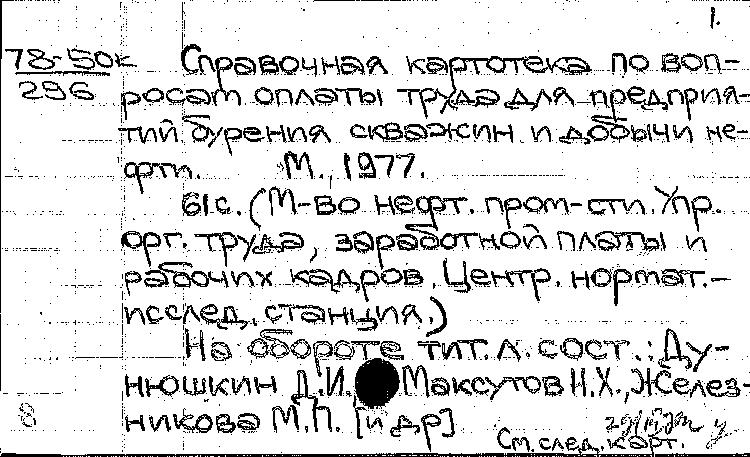 1.
78-50к
296
Справочная картотека по воп-
росам оплаты труда для предприя-
тий бурения скважин и добычи не-
фти. М., 1977.
61с. (М-во нефт. пром-сти. Упр.
орг. труда, заработной платы и
рабочих кадров. Центр. нормат.-
исслед. станция.)
На обороте тит. л. сост.: Ду-
нюшкин Д.И. Максутов Н.Х., Желез-
никова М.П. [и др]
8
См. след. карт.